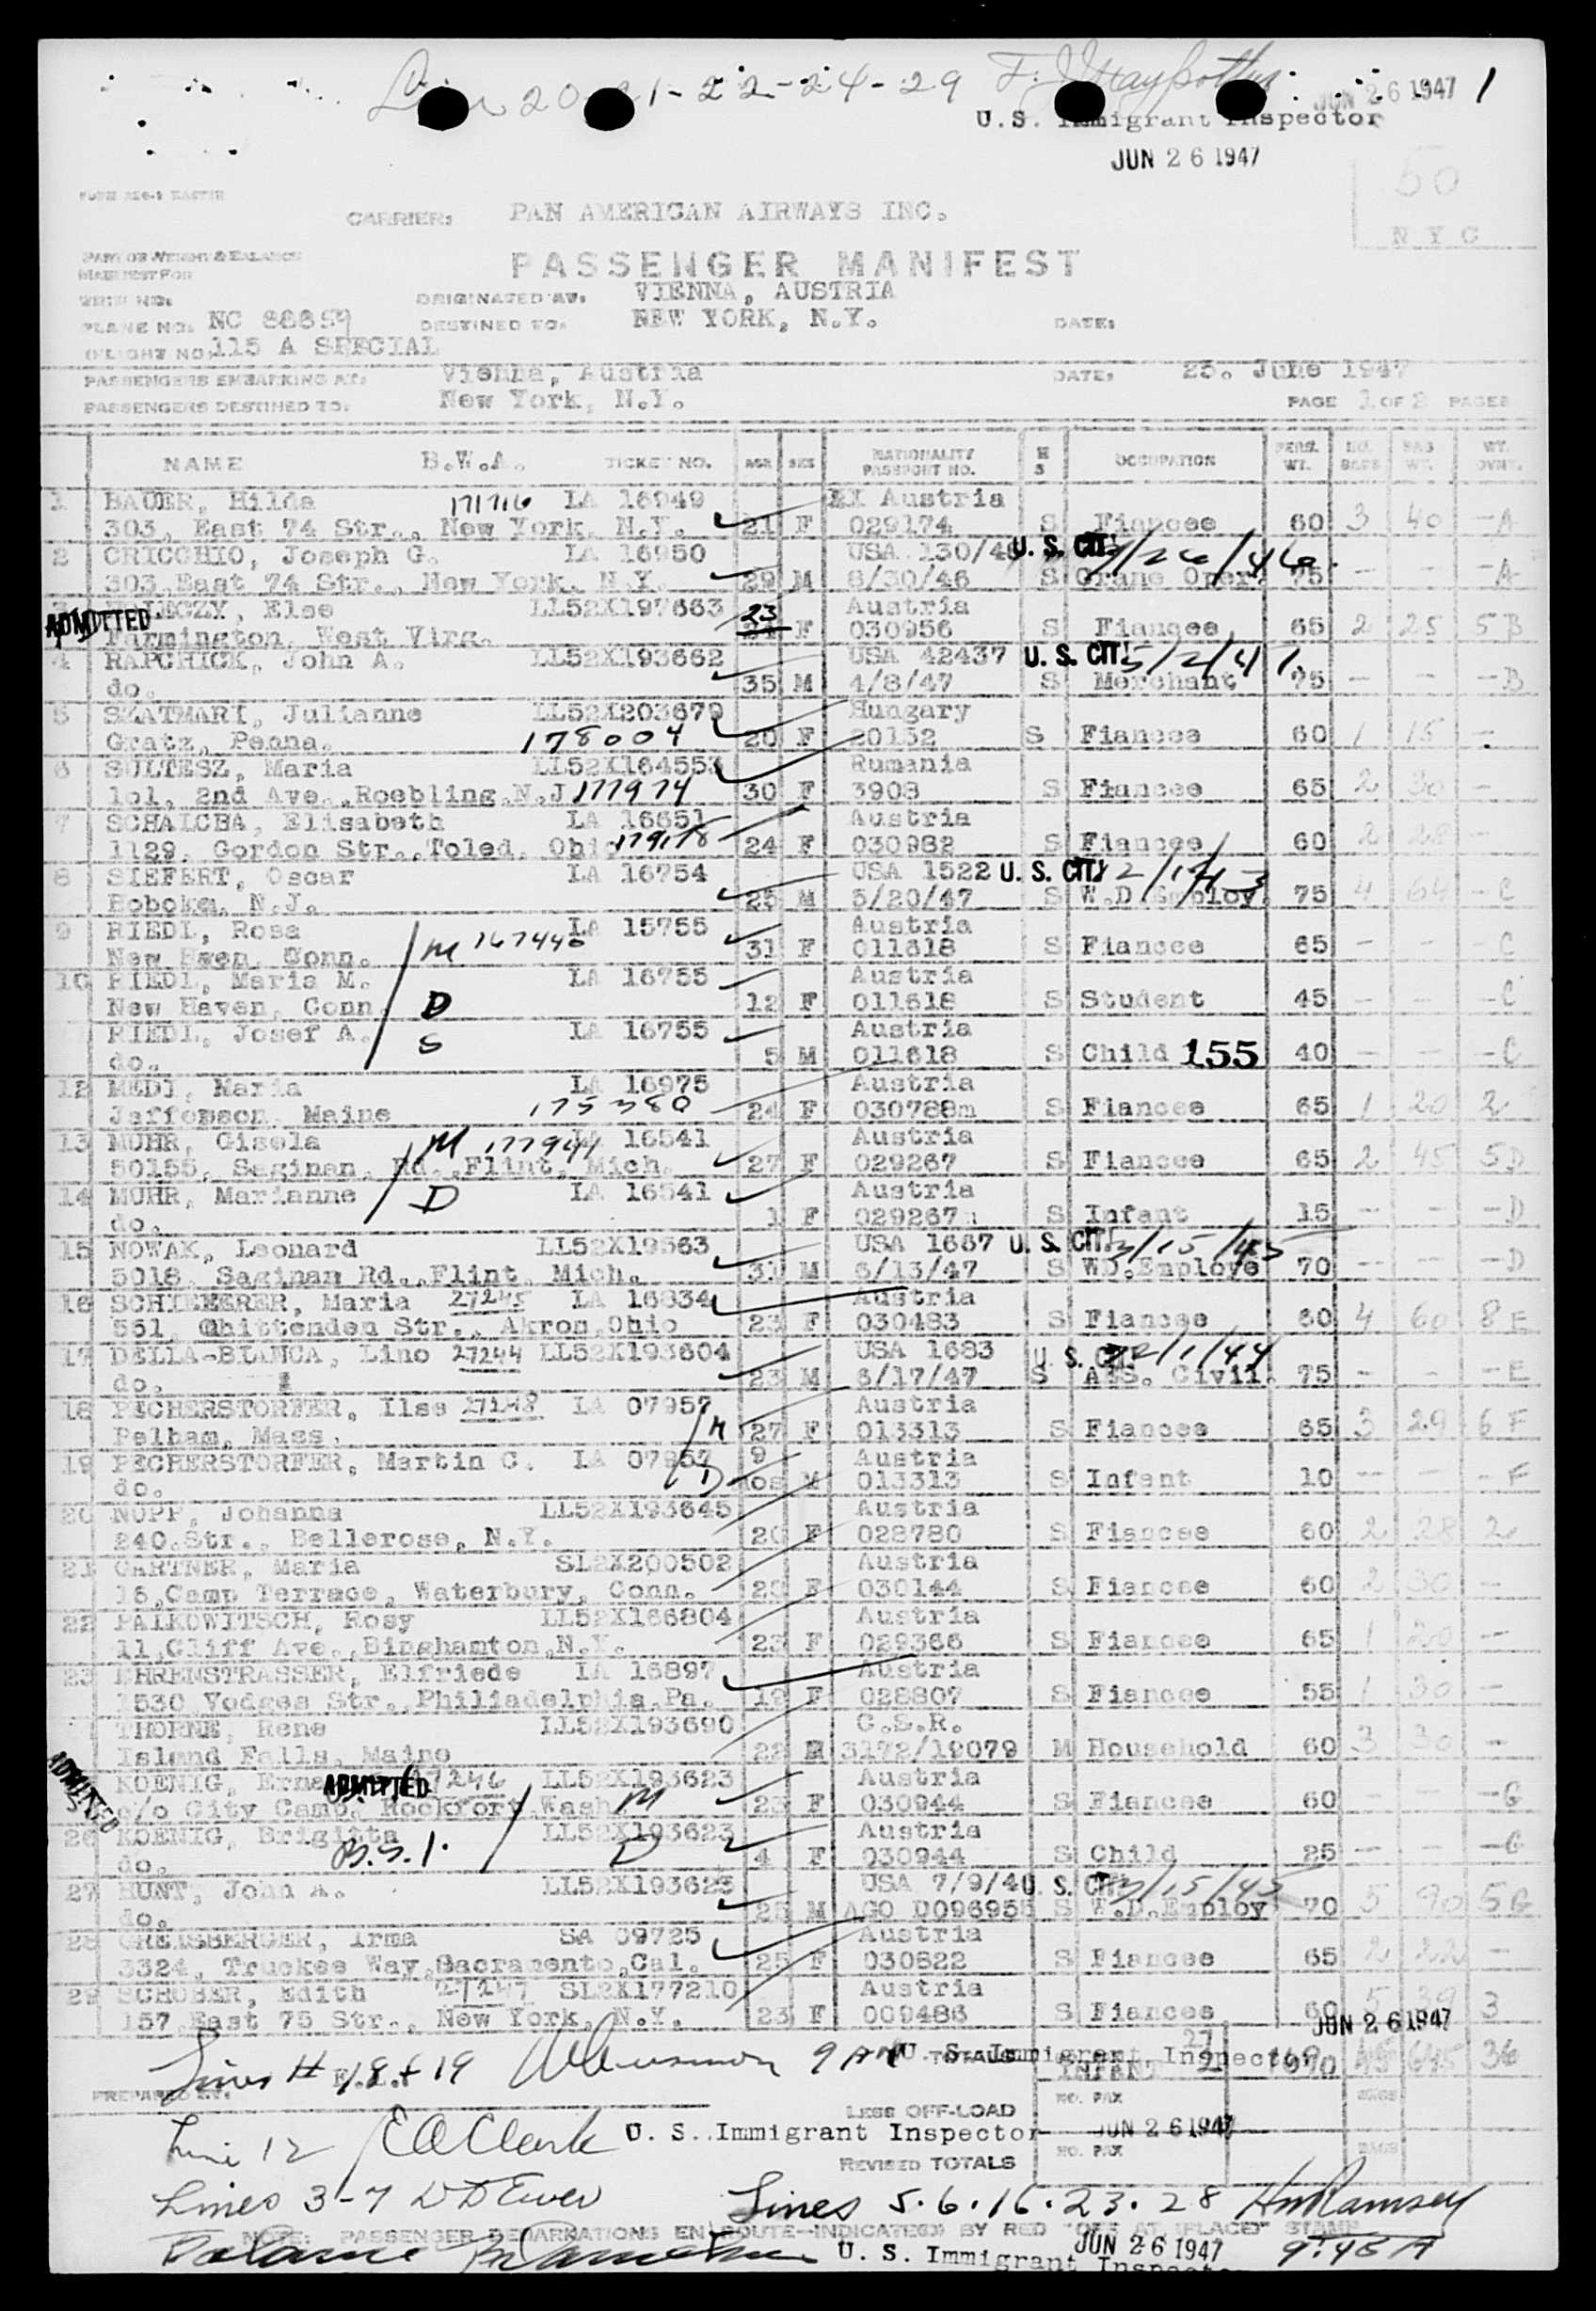 20-21-22-24-29
JUN 26 1947 1
U.S. Immigrant Inspector
JUN 26 1947
50
N Y C
CARRIER: PAN AMERICAN AIRWAYS INC.
PASSENGER MANIFEST
PART OF WEIGHT & BALANCE
MANIFEST FOR
TRIP NO. ORIGINATED AT: VIENNA, AUSTRIA
PLANE NO. NC 88859 DESTINED TO: NEW YORK, N.Y. DATE:
FLIGHT NO. 115 A SPECIAL
PASSENGERS EMBARKING AT: Vienna, Austria DATE: 25. June 1947
PASSENGERS DESTINED TO: New York, N.Y. PAGE 1 OF 2 PAGES
NAME B.W.A. TICKET NO. AGE SEX NATIONALITY PASSPORT NO. M S OCCUPATION PERS. WT. NO. BAGS BAG WT. WT. OVHT.
1 BAUER, Hilda 171716 LA 16949 Austria
303, East 74 Str., New York, N.Y. 21 F 029174 S Fiancee 60 3 40 - A
2 CRICCHIO, Joseph G. LA 16950 USA 130/46 U. S. CIT.
303 East 74 Str., New York, N.Y. 29 M 8/30/46 S Crane Oper. 75 - - - A
ADMITTED Else LL52X197663 23 Austria
Farmington, West Virg. F 030956 S Fiancee 65 2 25 5 B
4 RAPCHICK, John A. LL52X193662 USA 42437 U. S. CIT. 5/2/41
do. 35 M 4/8/47 S Merchant 75 - - - B
5 SZATMARI, Julianne LL52X203679 Hungary
Gratz, Penna. 178004 20 F 20152 S Fiancee 60 1 15 -
6 SULTESZ, Maria LL52X164553 Rumania
101, 2nd Ave., Roebling, N.J 177974 30 F 3908 S Fiancee 65 2 30 -
7 SCHALCHA, Elisabeth LA 16651 Austria
1129, Gordon Str., Toled. Ohio 24 F 030982 S Fiancee 60 2 28 -
8 SIEFERT, Oscar LA 16754 USA 1522 U. S. CIT.
Hoboken, N.J. 25 M 5/20/47 S W.D Employ. 75 4 64 - C
9 RIEDL, Rosa M 167440 LA 15755 Austria
New Haven, Conn. 31 F 011618 S Fiancee 65 - - - C
10 RIEDL, Maria M. LA 16755 Austria
New Haven, Conn. D 12 F 011618 S Student 45 - - - C
RIEDL, Josef A. S LA 16755 Austria
do. 5 M 011618 S Child 155 40 - - - C
12 MEDL, Maria LA 16975 Austria
Jefferson, Maine 175380 24 F 030788m S Fiancee 65 1 20 2
13 MUHR, Gisela M 177944 LA 16541 Austria
50155, Saginan, Rd., Flint, Mich. 27 F 029267 S Fiancee 65 2 45 5 D
14 MUHR, Marianne D LA 16541 Austria
do. 1 F 029267 S Infant 15 - - - D
15 NOWAK, Leonard LL52X19563 USA 1667 U. S. CIT. 3/15/45
5018, Saginan Rd., Flint, Mich. 31 M 6/13/47 S WD.Employe 70 - - - D
16 SCHIEMERER, Maria 27245 LA 16834 Austria
551, Chittenden Str., Akron, Ohio 23 F 030483 S Fiancee 60 4 60 8 E
17 DELLA-BIANCA, Lino 27244 LL52X193604 USA 1683 U. S. CIT.
do. 23 M 6/17/47 S AUS. Civil. 75 - - - E
18 PECHERSTORFER, Ilse 27248 LA 07957 Austria
Pelham, Mass. M 27 F 013313 S Fiancee 65 3 29 6 F
19 PECHERSTORFER, Martin C. LA 07957 9 Austria
do. D mos M 013313 S Infant 10 - - - F
20 NOPP, Johanna LL52X193645 Austria
240.Str., Bellerose, N.Y. 20 F 028780 S Fiancee 60 2 28 2
21 GARTNER, Maria SL2X200502 Austria
16,Camp Terrace, Waterbury, Conn. F 030144 S Fiancee 60 2 30 -
22 PALKOWITSCH, Rosy LL52X166804 Austria
11,Cliff Ave., Binghamton,N.Y. 23 F 029366 S Fiancee 65 1 20 -
23 EHRENSTRASSER, Elfriede LA 16897 Austria
1530 Vodges Str., Philiadelphia,Pa. 19 F 028807 S Fiancee 55 1 30 -
THORNE, Rene LL52X193690 C.S.R.
Island Falls, Maine 22 3172/19079 M Household 60 3 30 -
KOENIG, Erna ADMITTED 27246 LL52X193623 Austria
ADMITTED c/o City Camp, Rockfort Wash M 23 F 030944 S Fiancee 60 - - - G
26 KOENIG, Brigitta LL52X193623 Austria
do. B.S.I. D 4 F 030944 S Child 25 - - - G
27 HUNT, John A. LL52X193625 USA 7/9/4 U. S. CIT. 3/15/45
do. 25 M AGO D09695 S W.D.Employ 70 5 90 5 G
28 GREISBERGER, Irma SA 09725 Austria
3324, Truckee Way, Sacramento,Cal. 25 F 030822 S Fiancee 65 2 22 -
29 SCHOBER, Edith 27247 SL2X177210 Austria
157 East 75 Str., New York, N.Y. 23 F 009486 S Fiancee 60 5 39 3
JUN 26 1947
Lines # 18 + 19 9 AM U. S. Immigrant Inspector
TOTALS 27 INFANT 2 45 645 36
PREPARED BY:
LESS OFF-LOAD NO. PAX BAGS
Line 12 E A Clark U. S. Immigrant Inspector JUN 26 1947
REVISED TOTALS NO. PAX BAGS
Lines 3-7 Lines 5.6.16.23.28 HM Ramsey
NOTE: PASSENGER DEMARKATIONS EN ROUTE-INDICATED BY RED "OFF AT (PLACE)" STAMP
Balance U. S. Immigrant Inspector JUN 26 1947 9:45 A